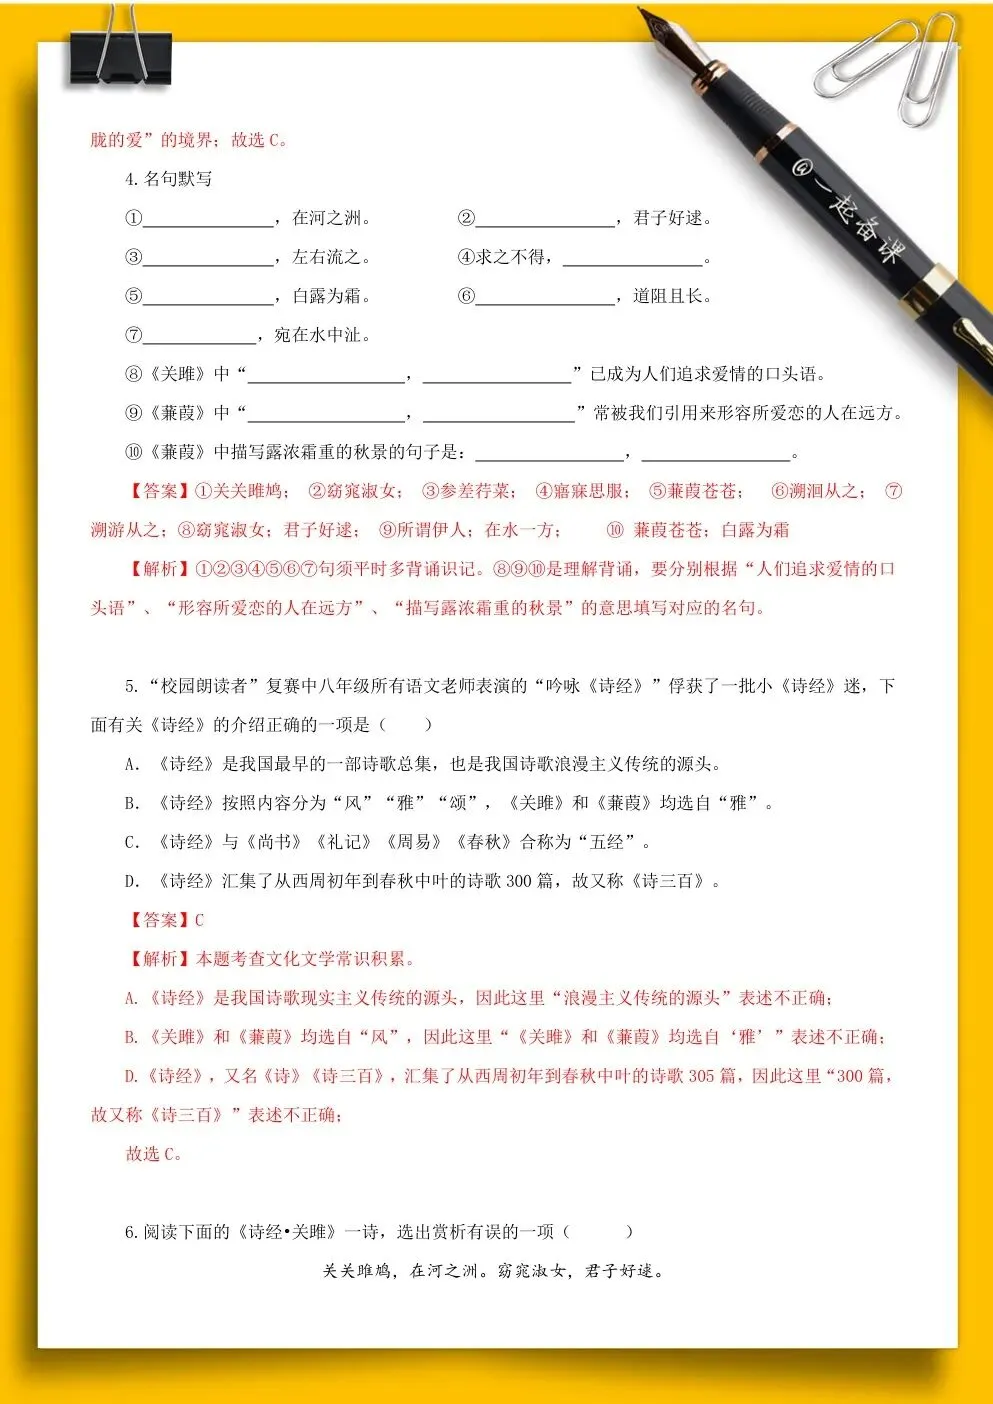 胧的爱”的境界；故选 C。
4.名句默写
①______________，在河之洲。 ②______________，君子好逑。
③______________，左右流之。 ④求之不得，______________。
⑤______________，白露为霜。 ⑥______________，道阻且长。
⑦____________，宛在水中沚。
⑧《关雎》中“________________，________________”已成为人们追求爱情的口头语。
⑨《蒹葭》中“________________，________________”常被我们引用来形容所爱恋的人在远方。
⑩《蒹葭》中描写露浓霜重的秋景的句子是：________________，________________。
【答案】①关关雎鸠； ②窈窕淑女； ③参差荇菜； ④寤寐思服； ⑤蒹葭苍苍； ⑥溯洄从之； ⑦
溯游从之；⑧窈窕淑女；君子好逑； ⑨所谓伊人；在水一方； ⑩ 蒹葭苍苍；白露为霜
【解析】①②③④⑤⑥⑦句须平时多背诵识记。⑧⑨⑩是理解背诵，要分别根据“人们追求爱情的口
头语”、“形容所爱恋的人在远方”、“描写露浓霜重的秋景”的意思填写对应的名句。
5.“校园朗读者”复赛中八年级所有语文老师表演的“吟咏《诗经》”俘获了一批小《诗经》迷，下
面有关《诗经》的介绍正确的一项是（ ）
A．《诗经》是我国最早的一部诗歌总集，也是我国诗歌浪漫主义传统的源头。
B．《诗经》按照内容分为“风”“雅”“颂”，《关雎》和《蒹葭》均选自“雅”。
C．《诗经》与《尚书》《礼记》《周易》《春秋》合称为“五经”。
D．《诗经》汇集了从西周初年到春秋中叶的诗歌 300 篇，故又称《诗三百》。
【答案】C
【解析】本题考查文化文学常识积累。
A.《诗经》是我国诗歌现实主义传统的源头，因此这里“浪漫主义传统的源头”表述不正确；
B.《关雎》和《蒹葭》均选自“风”，因此这里“《关雎》和《蒹葭》均选自‘雅’”表述不正确；
D.《诗经》，又名《诗》《诗三百》，汇集了从西周初年到春秋中叶的诗歌 305 篇，因此这里“300 篇，
故又称《诗三百》”表述不正确；
故选 C。
6.阅读下面的《诗经•关雎》一诗，选出赏析有误的一项（ ）
关关雎鸠，在河之洲。窈窕淑女，君子好逑。
@一起备课